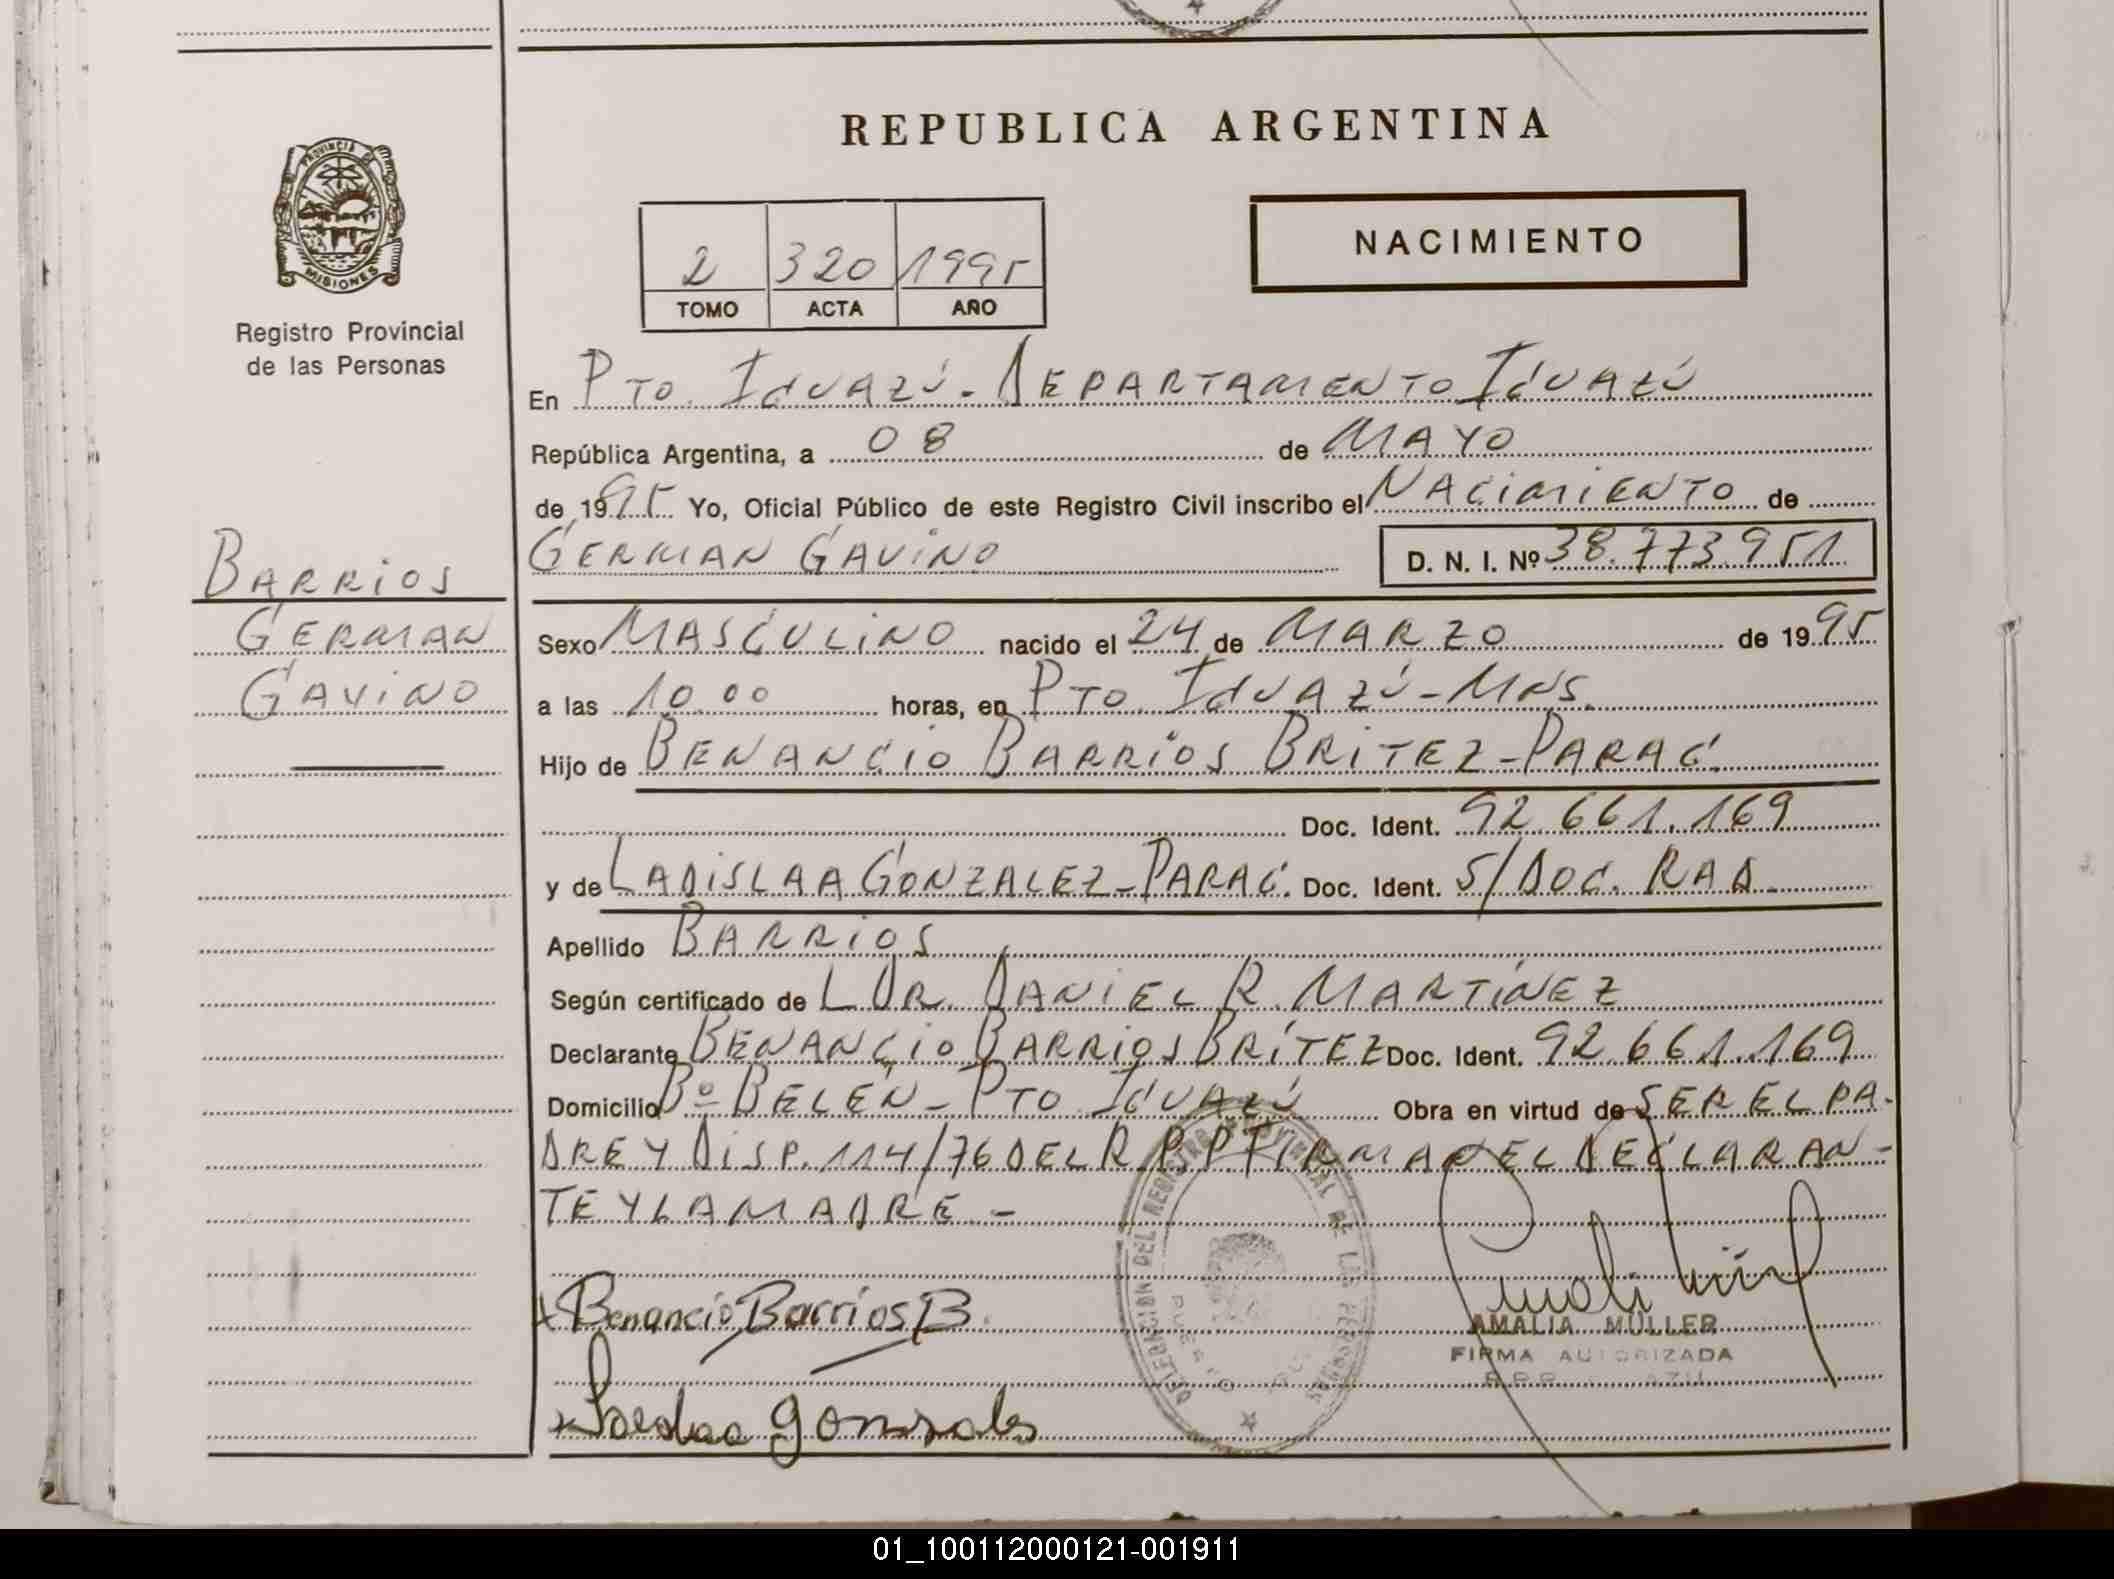 REPUBLICA ARGENTINA
PROVINCIA DE
MISIONES
Registro Provincial
de las Personas
NACIMIENTO
2 320 1995
TOMO ACTA AÑO
En PTO. IGUAZÚ - DEPARTAMENTO IGUAZÚ
República Argentina, a 08 de MAYO
de 1995 Yo, Oficial Público de este Registro Civil inscribo el NACIMIENTO de
GERMAN GAVINO D. N. I. Nº 38.773.951
BARRIOS
GERMAN
GAVINO
Sexo MASCULINO nacido el 24 de MARZO de 1995
a las 10.00 horas, en PTO. IGUAZÚ - MNS.
Hijo de BENANCIO BARRIOS BRITEZ - PARAG.
Doc. Ident. 92.661.169
y de LADISLAA GONZALEZ - PARAG. Doc. Ident. S/DOC. RAD.
Apellido BARRIOS
Según certificado de L DR. DANIEL R. MARTÍNEZ
Declarante BENANCIO BARRIOS BRÍTEZ Doc. Ident. 92.661.169
Domicilio Bº BELÉN - PTO IGUAZÚ Obra en virtud de SER EL PA-
DRE Y DISP. 114/76 DEL R.P.P. FIRMAN EL DECLARAN-
TE Y LA MADRE. -
x Benancio Barrios B.
AMALIA MÜLLER
FIRMA AUTORIZADA
DELEGACION DEL REGISTRO PROVINCIAL DE LAS PERSONAS
Gonzales
01_100112000121-001911